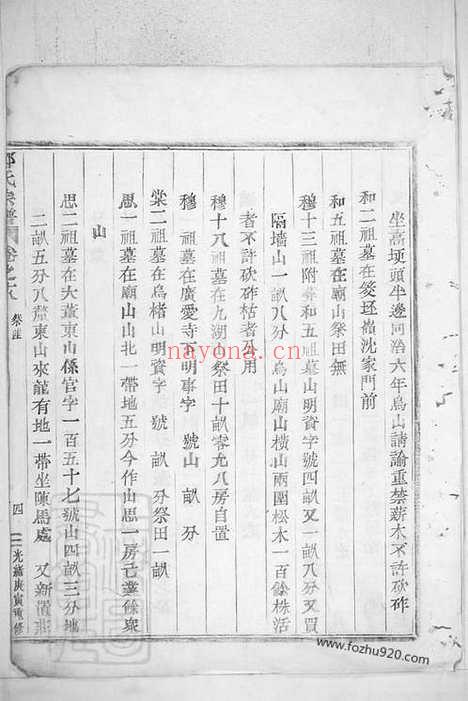 坐落塘頭半邊同治六年烏山請諭重禁薪木不許砍砟
和二祖墓在筊坯嶺沈家門前
和五祖墓在廟山祭田無
穆十三祖附葬和五祖墓山明資字號四畝又一畝八分又買
隔墻山一畝八分烏山廟山橫山兩圍松木一百餘株活
者不許砍砟枯者公用
穆十八祖墓在九湖祭田十畝零允八房自置
穆 祖墓在廣愛寺下明事字 號山 畝 分
棠二祖墓在烏楮山明資字 號 畝 分祭田一畝
思一祖墓在廟山山北一帶地五分今作山思一房已葬餘眾
山
思二祖墓在大董東山係官字一百五十七號山四畝三分地
二畝五分八釐東山來龍有地一帶坐陳馬處 又新置
氏宗譜 卷之 祭註 四 光緒庚寅重修
nayona.cc
www.fozhu920.com